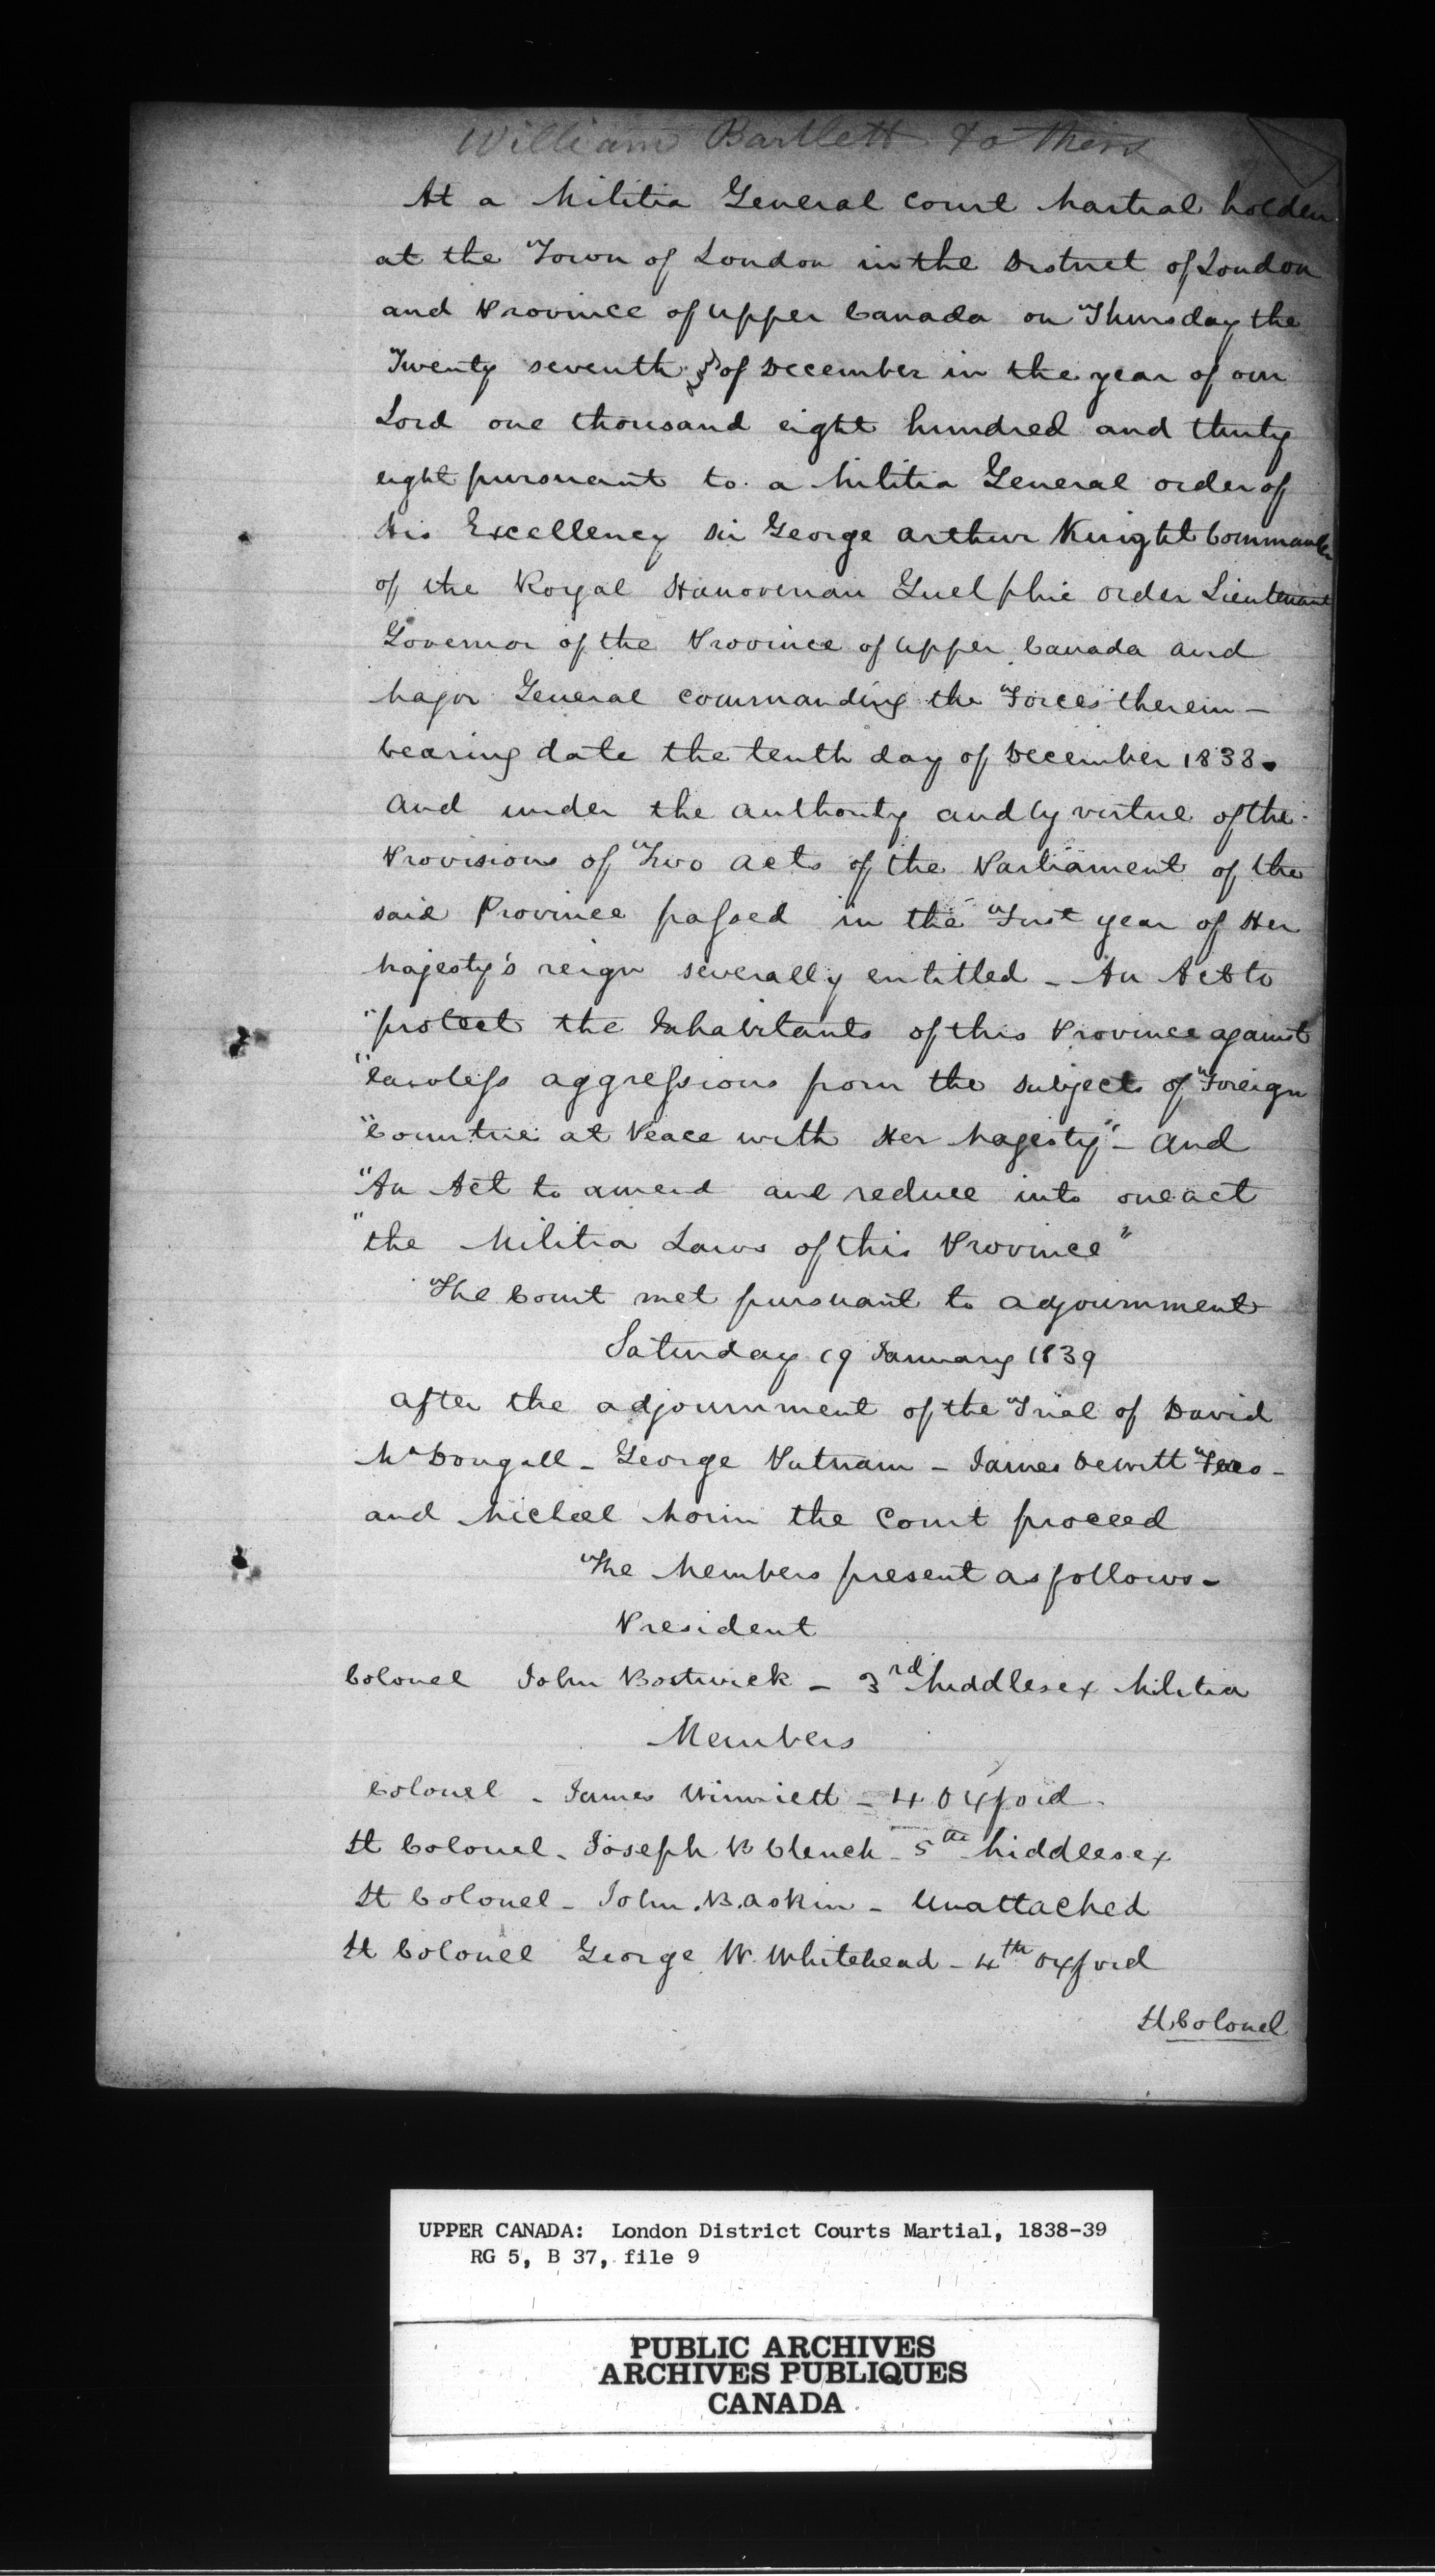 William Bartlett & others
At a Militia General Court Martial holden
at the Town of London in the District of London
and Province of Upper Canada on Thursday the
Twenty seventh of December in the year of our
Lord one thousand eight hundred and thirty
eight pursuant to a Militia General order of
His Excellency Sir George Arthur Knight Commander
of the Royal Hanoverian Guelphic order Lieutenant
Governor of the Province of Upper Canada and
Major General commanding the Forces therein —
bearing date the tenth day of December 1838.
and under the authority and by virtue of the
Provisions of Two acts of the Parliament of the
said Province passed in the First year of Her
Majesty's reign severally entitled - An Act to
"protect the Inhabitants of this Province against
"lawless aggressions from the subjects of Foreign
"Countrie at Peace with Her Majesty" - and
"An Act to amend and reduce into one act
"the Militia Laws of this Province"
The Court met pursuant to adjournment
Saturday 19 January 1839
after the adjournment of the Trial of David
McDougall - George Putnam - James Dewitt -
and Micheel Morin the Court proceed
The Members present as follows -
President
Colonel John Bostwick - 3rd Middlesex Militia
Members
Colonel - James Winniett - 4 Oxford -
Lt Colonel - Joseph B Clench - 5th Middlesex
Lt Colonel - John B. Askin - Unattached
Lt Colonel George W. Whitehead - 4th Oxford
Lt Colonel
UPPER CANADA: London District Courts Martial, 1838-39
RG 5, B 37, file 9
PUBLIC ARCHIVES
ARCHIVES PUBLIQUES
CANADA